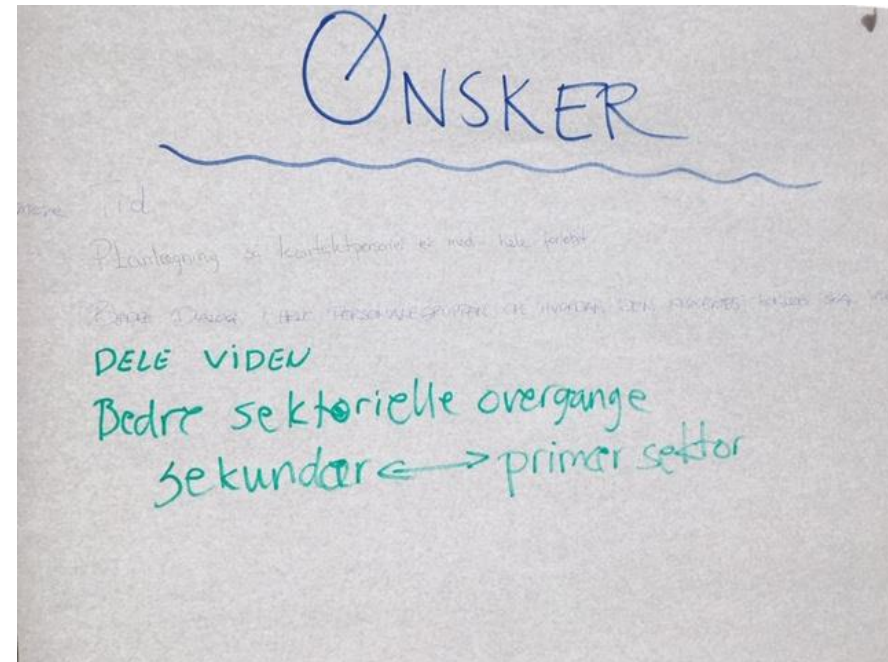 ØNSKER
mere Tid
Planlægning så kontaktperson er med hele forløbet
BEDRE DIALOG I HELE PERSONALEGRUPPEN OM HVORDAN DEN
DELE VIDEN
Bedre sektorielle overgange
sekundær <-> primær sektor